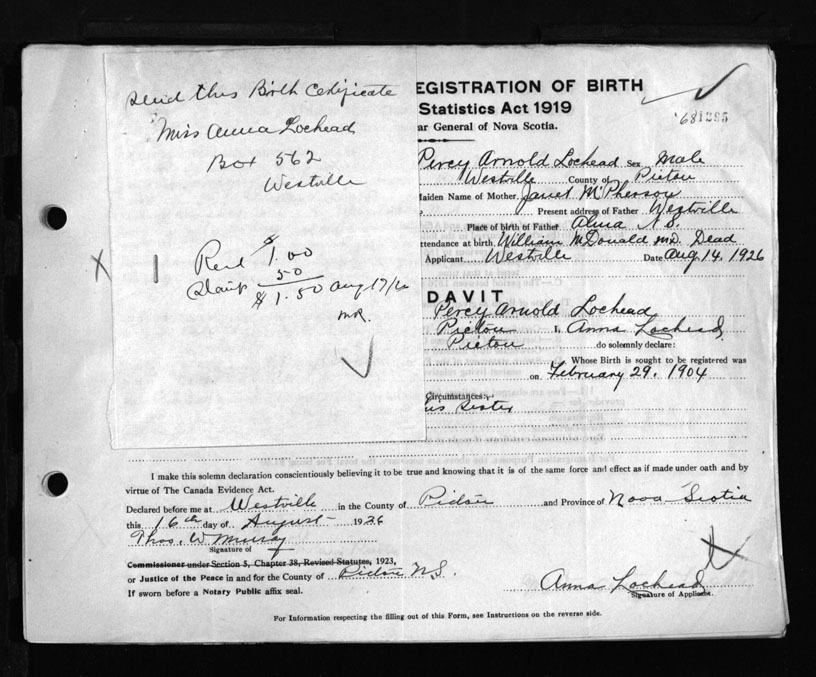 Send this Birth Certificate
Miss Anna Lochead
Box 562
Westville
X 1
Recd $1.00
Stamp 50
$1.50 Aug 17/26
MR.
EGISTRATION OF BIRTH
Statistics Act 1919
ar General of Nova Scotia.
681295
Percy Arnold Lochead Sex Male
Westville County of Pictou
Maiden Name of Mother Janet McPherson
Present address of Father Westville
Place of birth of Father Alma N.S.
ttendance at birth William McDonald M.D. Dead
Applicant Westville Date Aug. 14, 1926
DAVIT
Percy Arnold Lochead
Pictou I, Anna Lochead
Pictou do solemnly declare:
Whose Birth is sought to be registered was
on February 29, 1904
Circumstances:
his Sister
I make this solemn declaration conscientiously believing it to be true and knowing that it is of the same force and effect as if made under oath and by
virtue of The Canada Evidence Act.
Declared before me at Westville in the County of Pictou and Province of Nova Scotia
this 16th day of August 1926
Thos. W Murray
Signature of
Commissioner under Section 5, Chapter 38, Revised Statutes, 1923,
or Justice of the Peace in and for the County of Pictou N.S.
If sworn before a Notary Public affix seal.
Anna Lochead
Signature of Applicant.
For Information respecting the filling out of this Form, see Instructions on the reverse side.